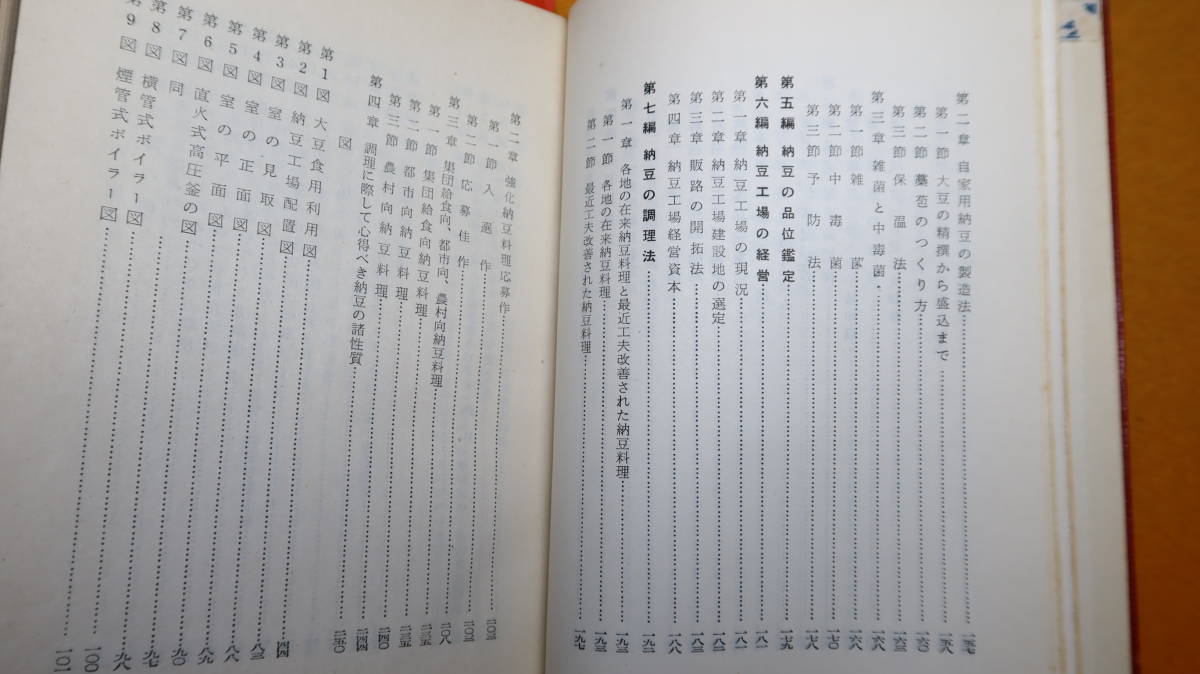 第二章 自家用納豆の製造法…一五七
第一節 大豆の精撰から盛込まで…一五八
第二節 藁苞のつくり方…一六〇
第三節 保温法…一六三
第三章 雑菌と中毒菌…一六六
第一節 雑菌…一六八
第二節 中毒菌…一七〇
第三節 予防法…一七八
第五編 納豆の品位鑑定…一七九
第六編 納豆工場の経営…一八一
第一章 納豆工場の現況…一八一
第二章 納豆工場建設地の選定…一八二
第三章 販路の開拓法…一八三
第四章 納豆工場経営資本…一八八
第七編 納豆の調理法…一九二
第一章 各地の在来納豆料理と最近工夫改善された納豆料理…一九三
第一節 各地の在来納豆料理…一九三
第二節 最近工夫改善された納豆料理…一九七
第二章 強化納豆料理応募作…二〇三
第一節 入選作…二〇三
第二節 応募佳作…二〇三
第三章 集団給食向、都市向、農村向納豆料理…二〇八
第一節 集団給食向納豆料理…二三五
第二節 都市向納豆料理…二三五
第三節 農村向納豆料理…二四〇
第四章 調理に際して心得べき納豆の諸性質…二四四
図…二五〇
第1図 大豆食用利用図
第2図 納豆工場配置図…四四
第3図 室の見取図…八三
第4図 室の正面図…八八
第5図 室の平面図…八九
第6図 直火式高圧釜の図…九〇
第7図 同…九七
第8図 横管式ボイラー図…九八
第9図 煙管式ボイラー図…一〇〇
一〇一